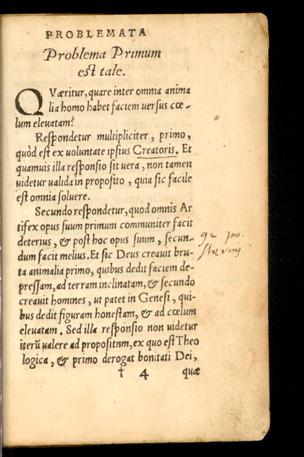 PROBLEMATA
Problema Primum
est tale.
QVæritur, quare inter omnia anima
lia homo habet faciem versus cœ-
lum eleuatam?
Respondetur multipliciter, primo,
quòd est ex voluntate ipsius Creatoris. Et
quamuis illa responsio sit vera, non tamen
videtur valida in proposito, quia sic facile
est omnia soluere.
Secundo respondetur, quod omnis Ar
tifex opus suum primum communiter facit
deterius, & post hoc opus suum, secun-
dum facit melius. Et sic Deus creauit bru-
ta animalia primo, quibus dedit faciem de-
pressam, ad terram inclinatam, & secundo
creauit homines, ut patet in Genesi, qui-
bus dedit figuram honestam, & ad cœlum
eleuatam. Sed illa responsio non videtur
iterū valere ad propositum, ex quo est Theo
logica, & primo derogat bonitati Dei,
† 4 quæ